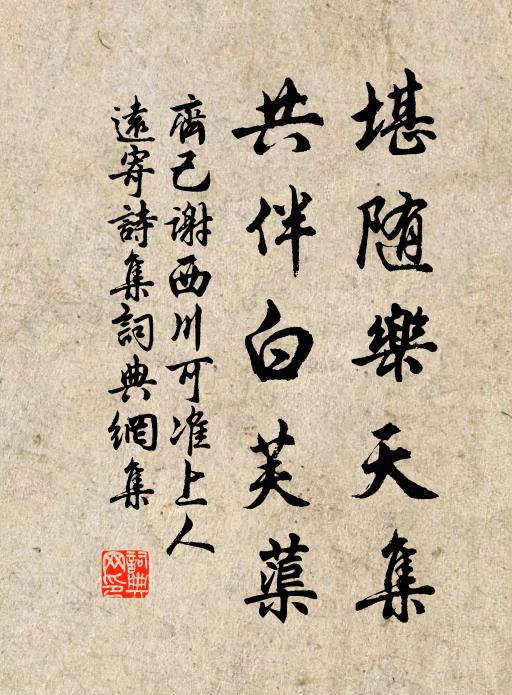 堪随樂天集
共伴白芙蕖
齊己謝西川可准上人
遠寄詩集詞典網集
詞典网印